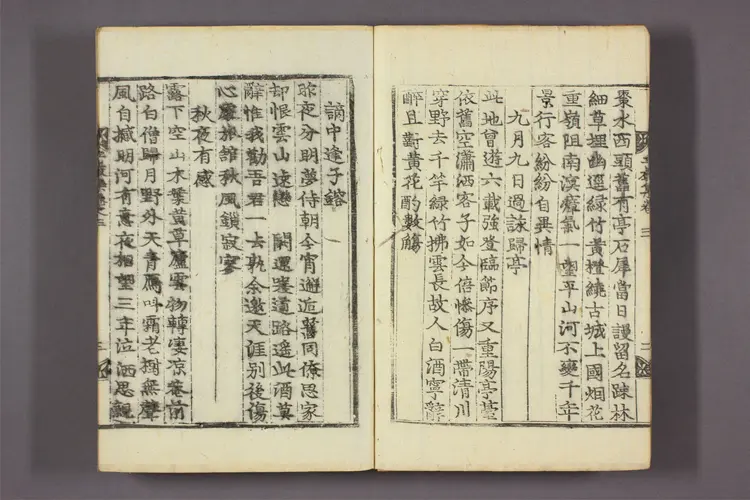 棗水西頭舊有亭石犀當日謾留名踈林
細草埋幽逕綠竹黃橙繞古城上國烟花
重嶺阻南溟瘴氣一壑平山河不變千年
景行客紛紛自異情
九月九日過詠歸亭
此地曾遊六載強登臨節序又重陽亭臺
依舊空瀟洒客子如今倍慘傷一帶清川
穿野去千竿綠竹拂雲長故人白酒寧辭
醉且對黃花酌數觴
謫中逢子鎔
昨夜分明夢侍朝今宵邂逅舊同僚思家
却恨雲山遠戀闕還嗟道路遙此酒莫
辭惟我勸吾君一去孰余邀天涯別後傷
心處旅館秋風鎖寂寥
秋夜有感
露下空山木葉黃草廬雲物轉凄凉菴前
路白僧歸月野外天青鴈叫霜老樹無聲
風自撼明河有意夜相望三年泣洒思親